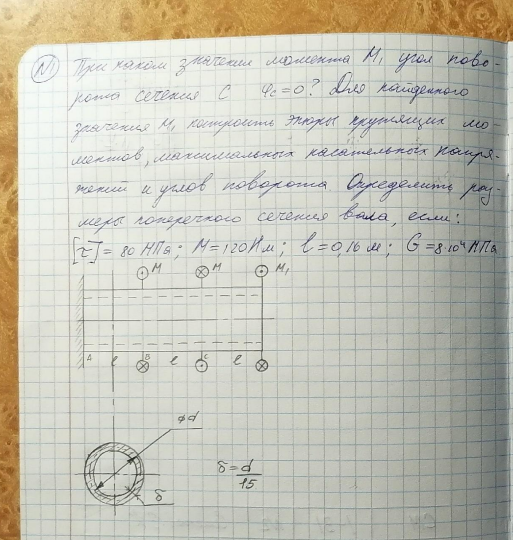 N1 При каком значении момента M₁ угол пово-
рота сечения C φc=0? Для найденного
значения M₁ построить эпюры крутящих мо-
ментов, максимальных касательных напря-
жений и углов поворота Определить раз-
меры поперечного сечения вала, если:
[τ]= 80 МПа; M=120Нм; l=0,16м; G=8·10⁴МПа
M M M₁
A l B l C l
φd
δ = d/15
δ